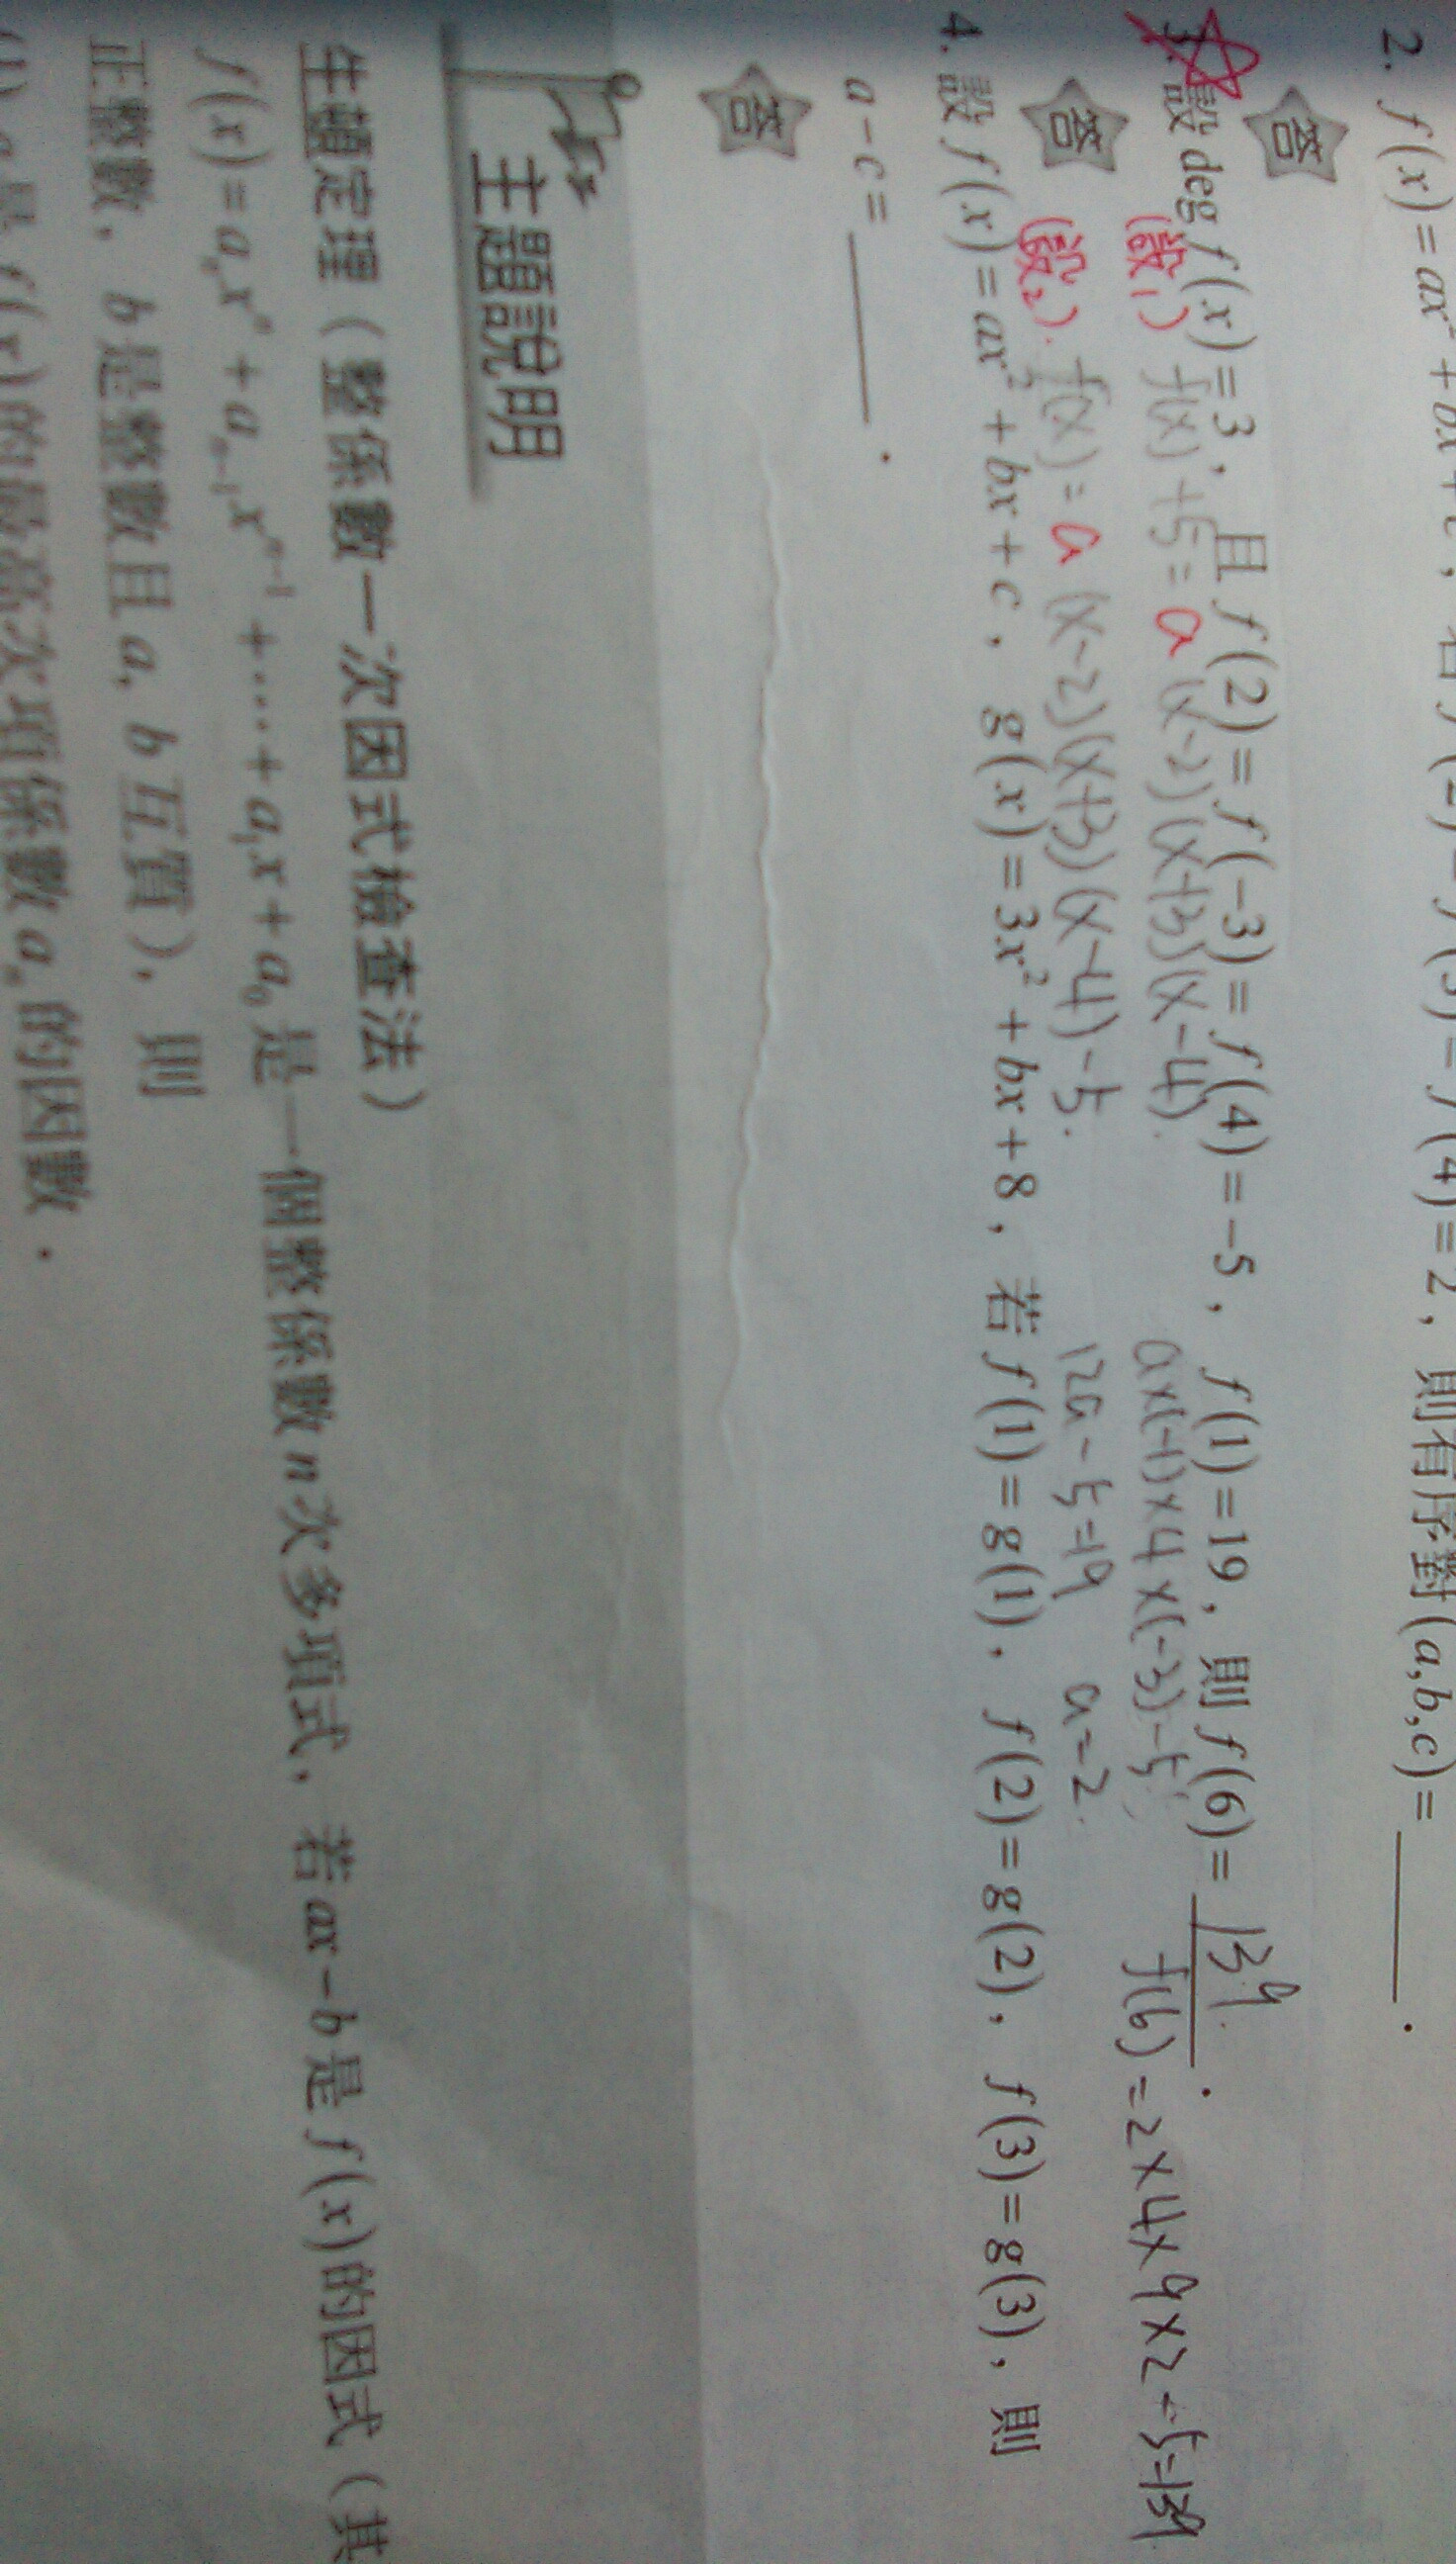 2. f(x)=ax²+bx+c，若f(2)=f(3)=f(4)=2，則有序對(a,b,c)=______．
答
3. 設deg f(x)=3，且f(2)=f(-3)=f(4)=-5，f(1)=19，則f(6)=139．
(設1) f(x)+5=a(x-2)(x+3)(x-4). ax(-1)x4x(-3)-5, f(6)=2x4x9x2-5=139
答 (設2). f(x)=a(x-2)(x+3)(x-4)-5. 12a-5=19 a=2.
4. 設f(x)=ax²+bx+c，g(x)=3x²+bx+8，若f(1)=g(1)，f(2)=g(2)，f(3)=g(3)，則
a-c=______．
答
主題說明
牛頓定理（整係數一次因式檢查法）
f(x)=aₙxⁿ+aₙ₋₁xⁿ⁻¹+⋯+a₁x+a₀是一個整係數n次多項式，若ax-b是f(x)的因式（其
正整數，b是整數且a，b互質），則
(1) a是f(x)的最高次項係數aₙ的因數．